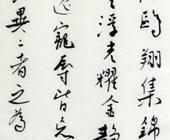 鷗翔集錦
浮光耀金静
寵辱皆忘
異二者之為